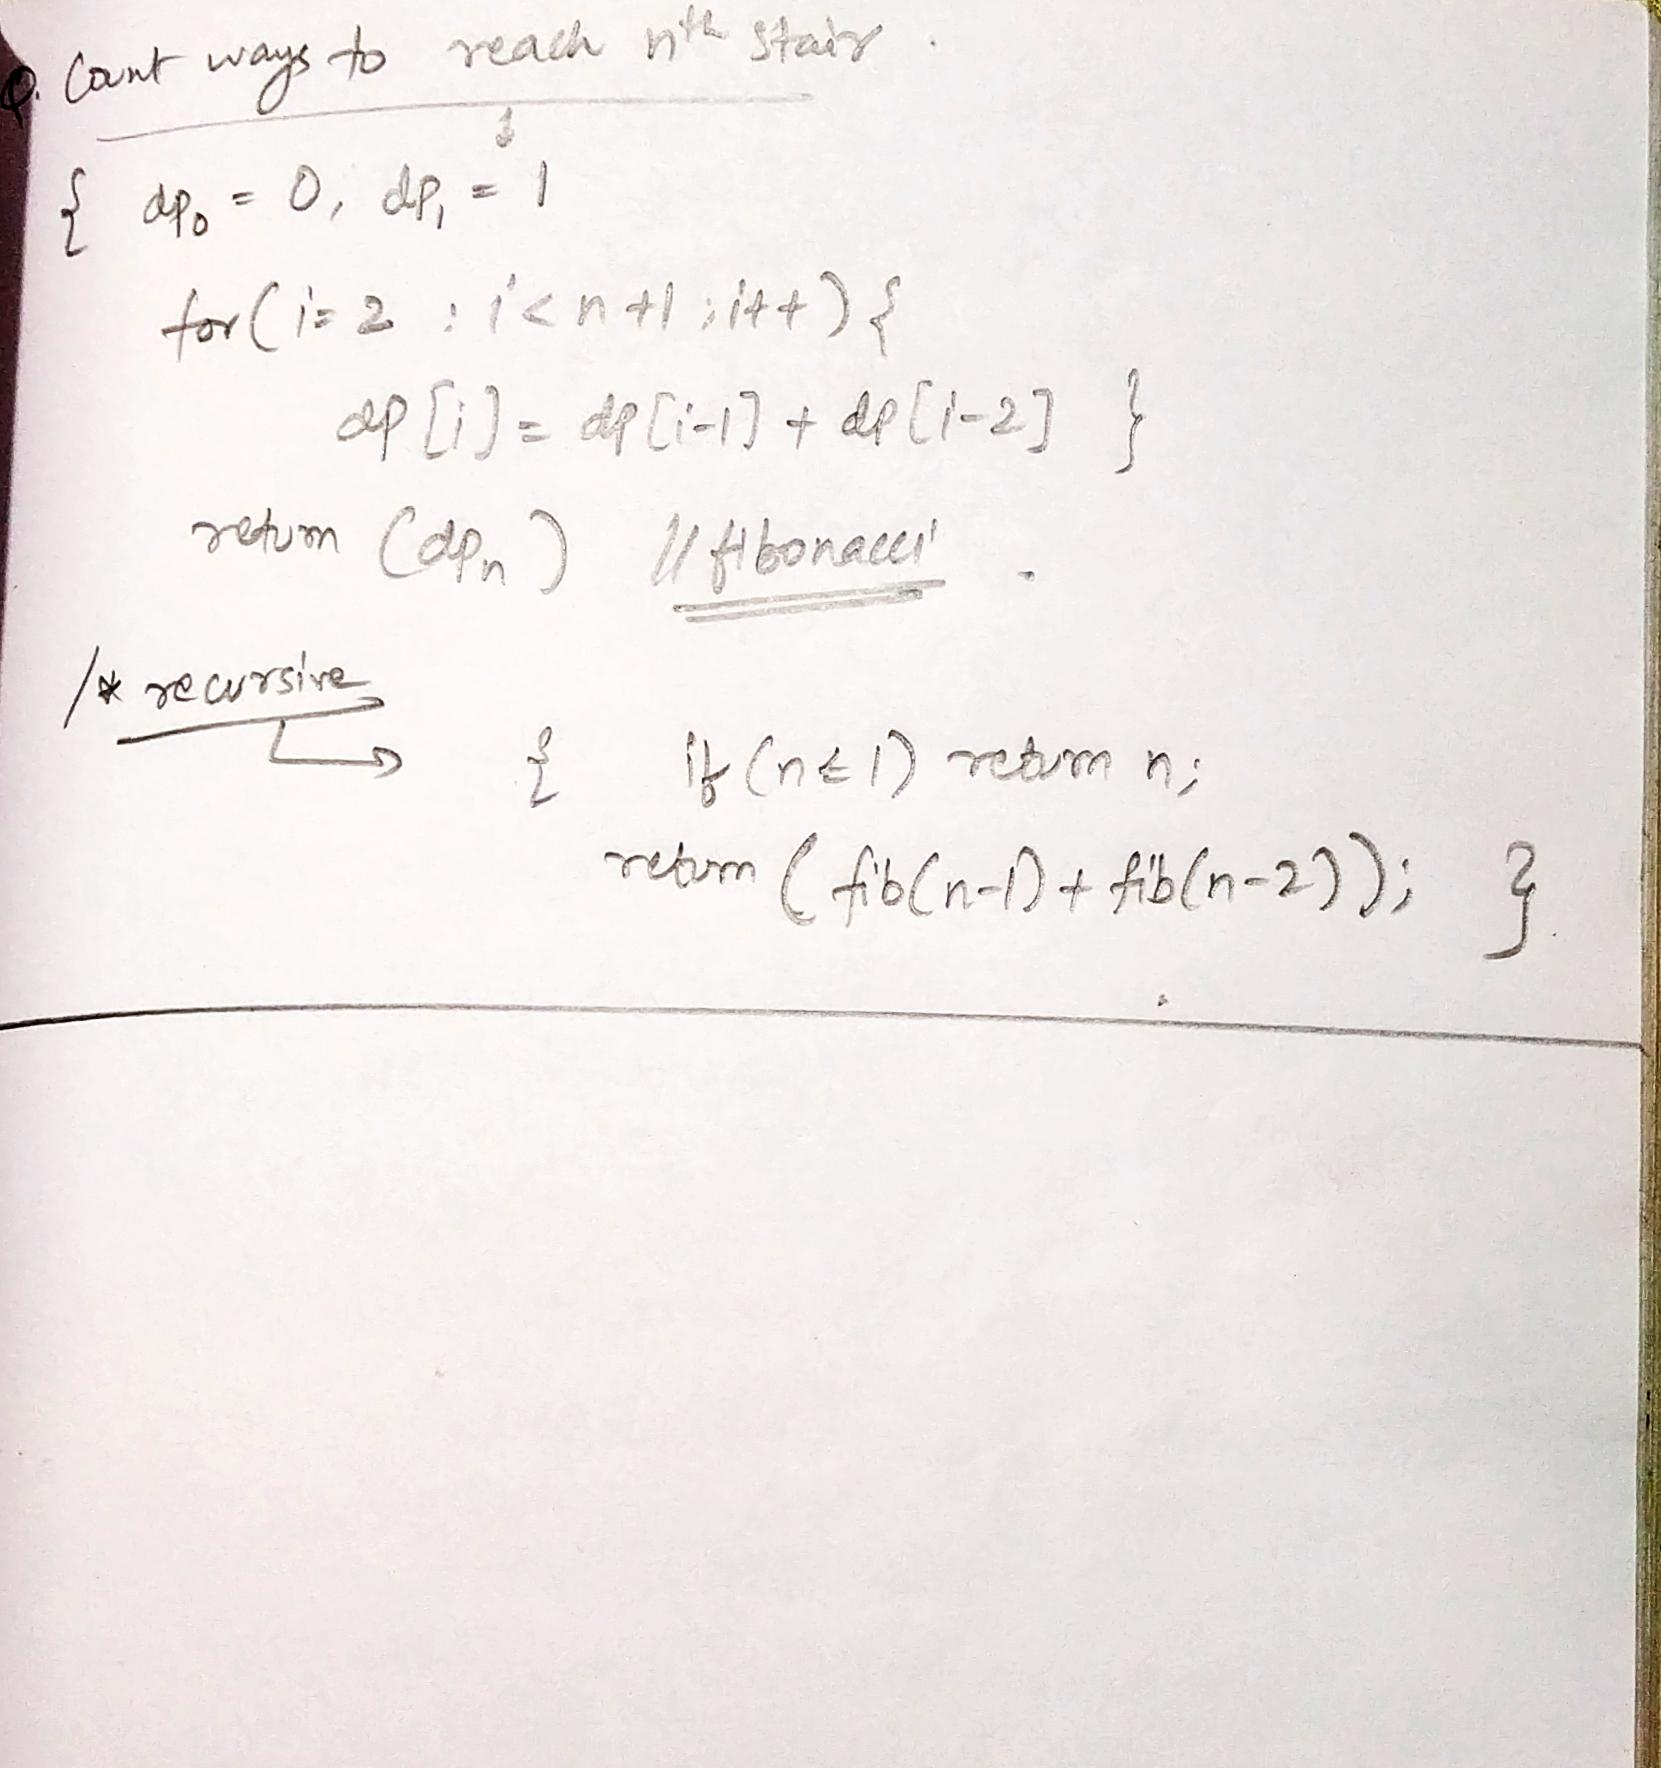 Q. Count ways to reach nth stair.
{ dp₀ = 0, dp₁ = 1
for(i=2 ; i<n+1 ; i++){
dp[i] = dp[i-1] + dp[i-2] }
return (dpₙ) // fibonacci .
/* recursive
{ if (n≤1) return n;
return (fib(n-1)+fib(n-2)); }